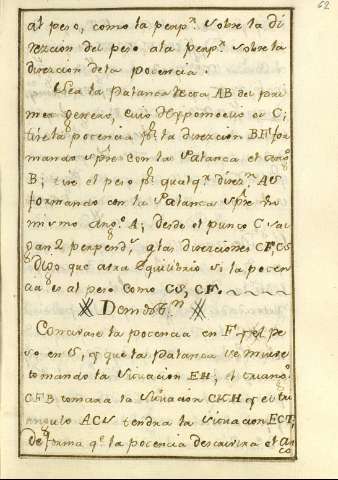 62
al peso, como la perp.ª sobre la di
reczion del peso ala perp.ª sobre la
direzcion dela potencia.
Sea la Palanca recta AB del pri
mer genero, cuio Hypomoclio es C;
tire la potencia p.r la direzcion BF for
mando s.pre con la Palanca el ang.º
B; tire el peso p.r qualq.ª direz.n AG
formando con la Palanca s.pre un
mismo ang.º A; desde el punto C cai
gan 2 perpend.s a las direcziones CF, CG
digo que aura Equilibrio si la poten
cia es al peso como CG, CF.
Demostr.n
Concivase la potencia en F y el pe
so en G, y que la Palanca se mueve
tomando la situacion EH; el triang.º
CFB tomara la situacion CKH y el tri
angulo ACG tendra la situacion ECT,
de forma q.e la potencia descrivira el ar
co